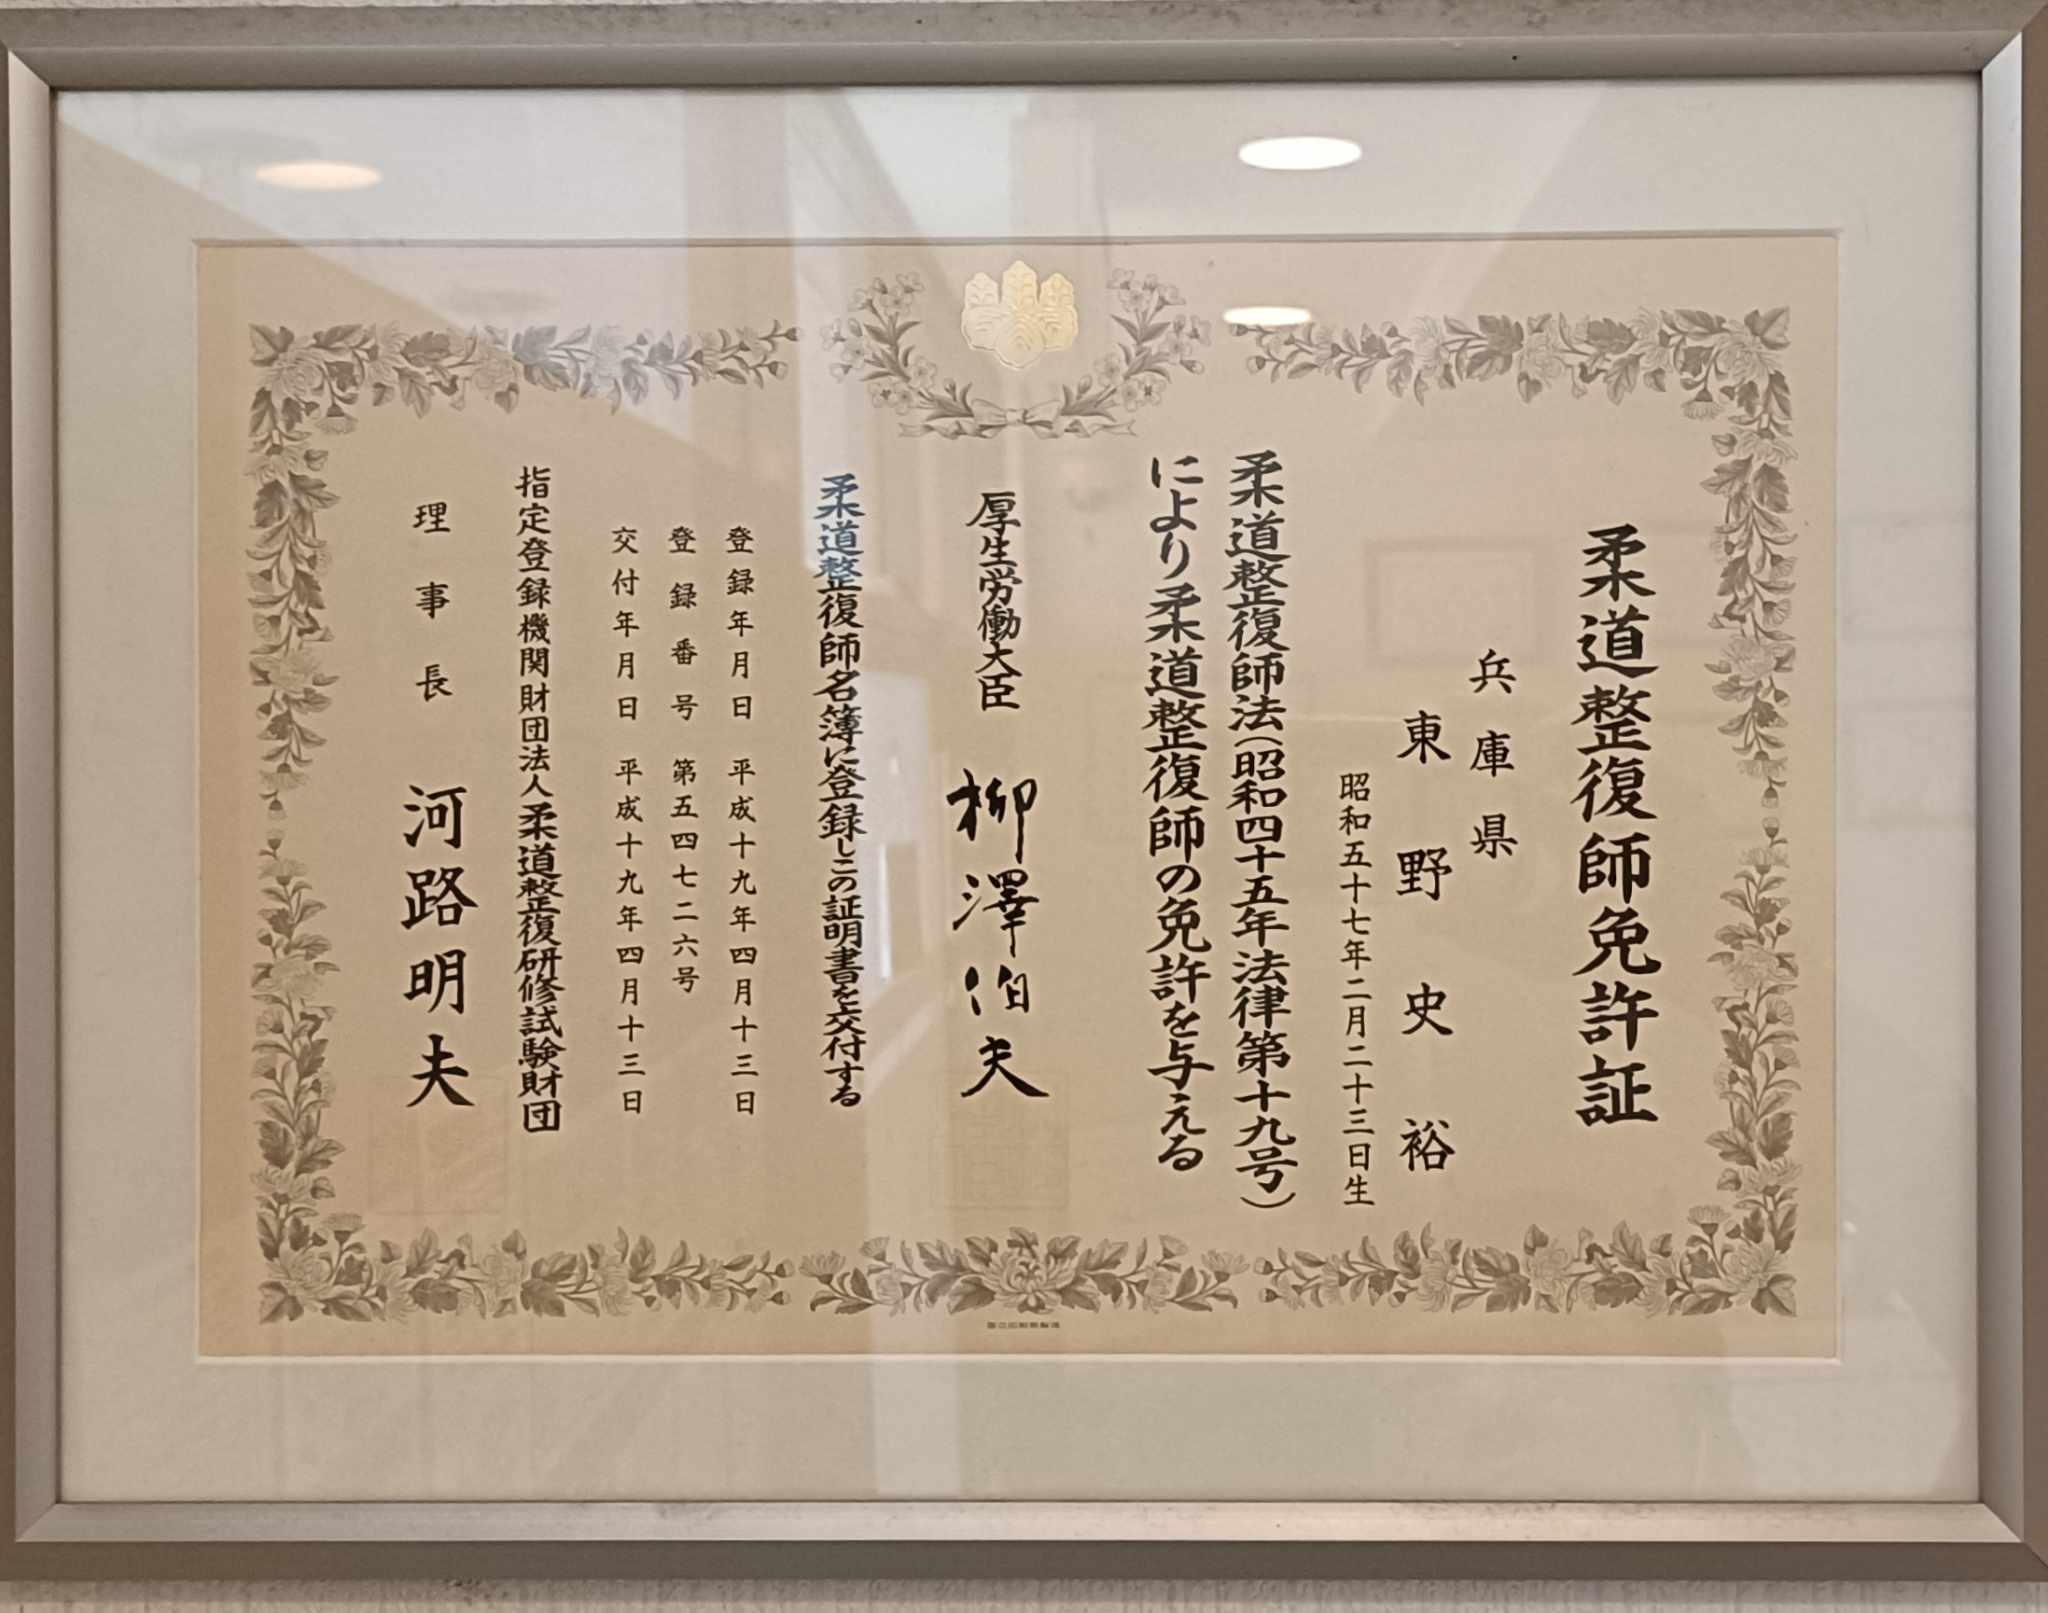 柔道整復師免許証
兵庫県
東野史裕
昭和五十七年二月二十三日生
柔道整復師法(昭和四十五年法律第十九号)
により柔道整復師の免許を与える
厚生労働大臣 柳澤伯夫
柔道整復師名簿に登録しこの証明書を交付する
登録年月日 平成十九年四月十三日
登録番号 第五四七二六号
交付年月日 平成十九年四月十三日
指定登録機関財団法人柔道整復研修試験財団
理事長 河路明夫
国立印刷局製造